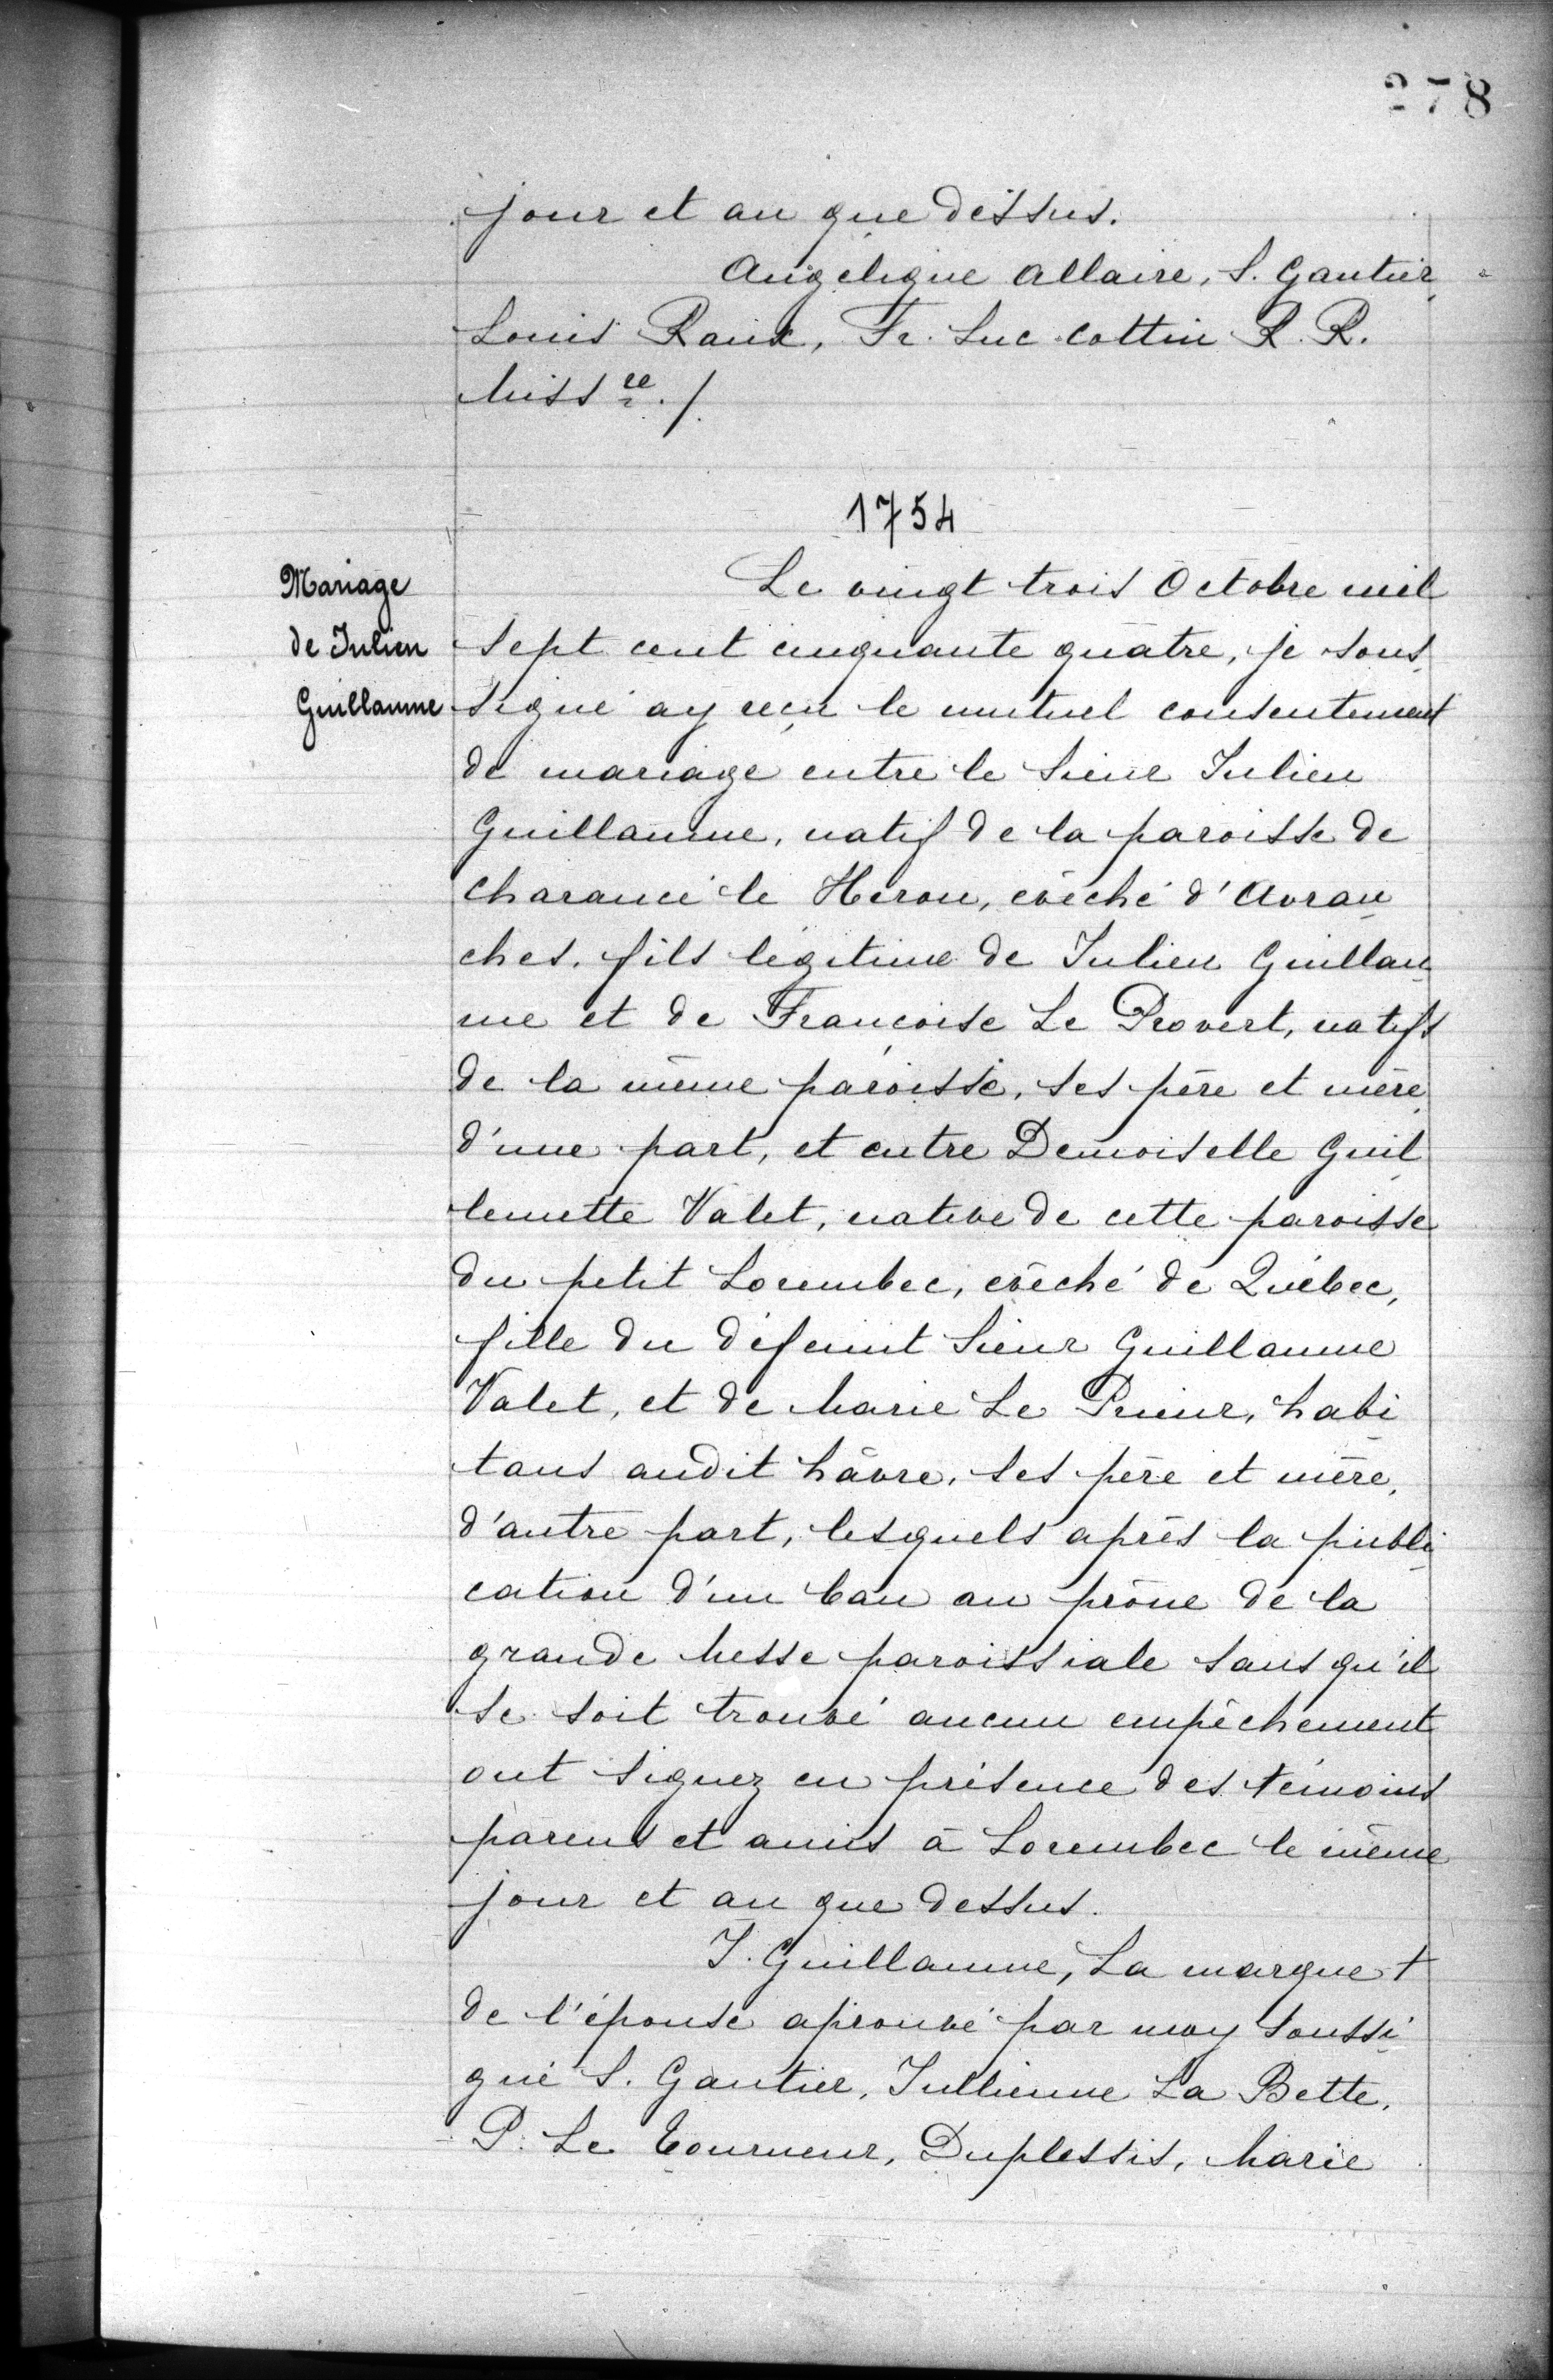 278
jour et an que dessus.
Angélique Allaire, S. Gautier
Louis Raux, Fr. Luc Cottin R. R.
Miss re. /.
1754
Mariage
de Julien
Guillaume
Le vingt trois Octobre mil
sept cent cinquante quatre, je sous
signé ay reçu le mutuel consentement
de mariage entre le Sieur Julien
Guillaume, natif de la paroisse de
Charancé le Héron, evêché d'Avran
ches, fils légitime de Julien Guillau
me et de Françoise Le Provert, natifs
de la même paroisse, ses père et mère
d'une part, et entre Demoiselle Guil
lemette Valet, native de cette paroisse
du petit Lorembec, evêché de Québec,
fille du défunt Sieur Guillaume
Valet, et de Marie Le Prieur, habi
tans audit hâvre, ses père et mère,
d'autre part, lesquels après la publi
cation d'un ban au prône de la
grande Messe paroissiale sans qu'il
se soit trouvé aucun empêchement
ont signez en présence des témoins
parens et amis à Lorembec le même
jour et an que dessus.
J. Guillaume, La marque +
de l'épouse aprouvé par moy soussi
gné S. Gautier, Jullienne La Bette,
P. Le Tourneur, Duplessis, Marie